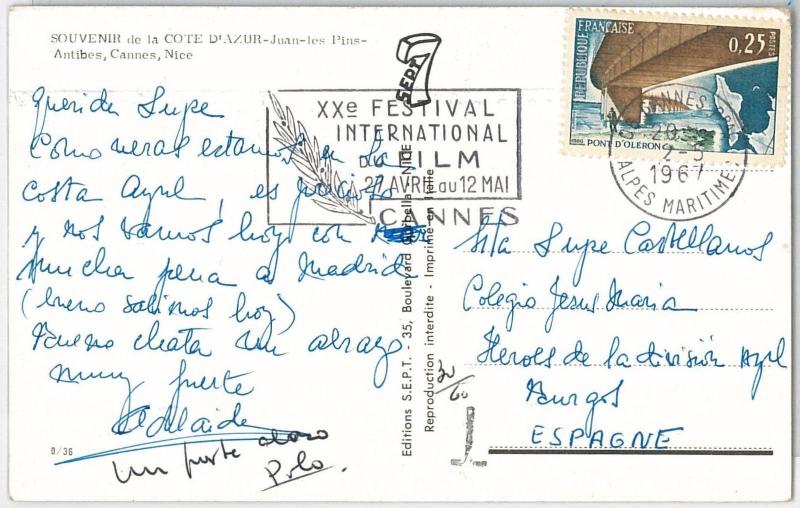 SOUVENIR de la COTE D'AZUR-Juan-les Pins-
Antibes, Cannes, Nice
Querida Lupe
Como veras estamos en la
costa Azul, es precioso
y nos vamos hoy con
mucha pena a Madrid
(bueno salimos hoy)
Bueno chata un abrazo
muy fuerte
Adelaida
Un fuerte abrazo
Polo.
0/36
SEPT
XXe FESTIVAL
INTERNATIONAL
DU FILM
27 AVRIL au 12 MAI
CANNES
Editions S.E.P.T. - 35, Boulevard NICE
Reproduction interdite - Imprimé en Italie
RÉPUBLIQUE FRANÇAISE
0,25
POSTES
PONT D'OLÉRON
CANNES
2-5
1967
ALPES MARITIMES
Srta Lupe Castellanos
Colegio Jesus Maria
Heroes de la división Azul
Burgos
ESPAGNE
30/60